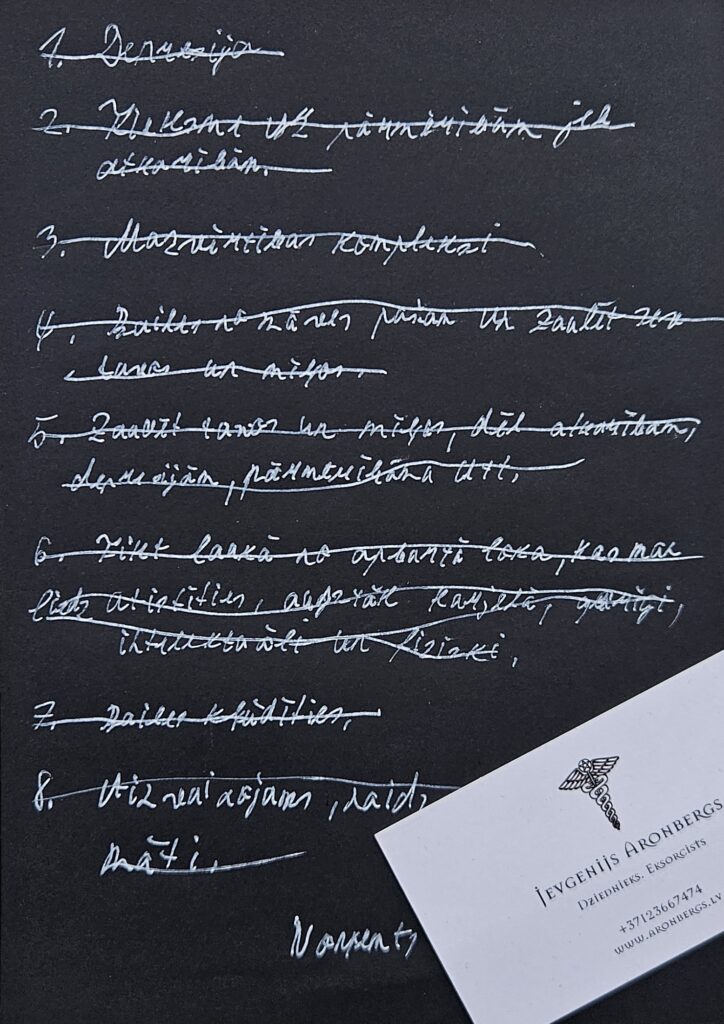 1. Depresija
2. Tieksme uz pārmērībām jeb
atkarībām.
3. Mazvērtības kompleksi
4. Bailes no nāves pašam un zaudēt
savus un mīļos.
5. Zaudēt savus un mīļos, dēļ atkarībām,
depresijām, pārmērībām utt.
6. Tikt laukā no apburtā loka, kas man
liedz attīstīties, augstāk karjerā, garīgi,
intelektuāli un fiziski.
7. Bailes kļūdīties.
8. Aizvainojums,
māti.
JEVGENIJS ARONBERGS
DZIEDNIEKS. EKSORCISTS
+37123667474
WWW.ARONBERGS.LV